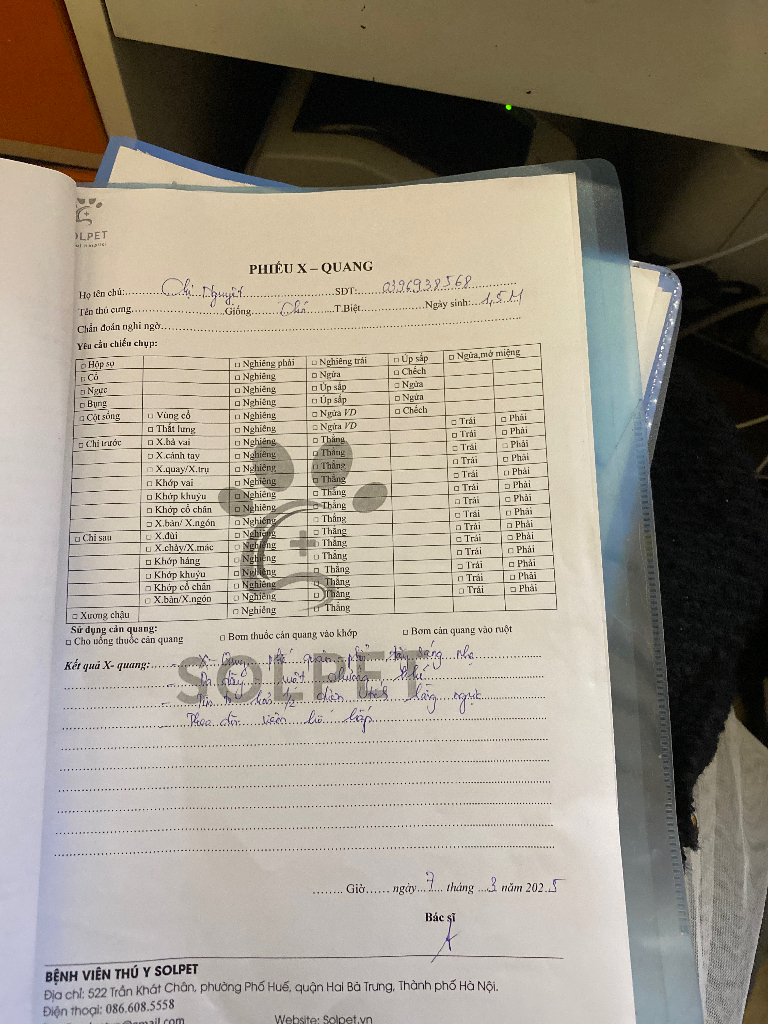 OLPET
PHIẾU X – QUANG
Họ tên chủ: Chị Nguyệt SDT: 0396938568
Tên thú cưng Giống Chó T.Biệt Ngày sinh: 1,5M
Chẩn đoán nghi ngờ
Yêu cầu chiếu chụp:
□ Hộp sọ □ Nghiêng phải □ Nghiêng trái □ Úp sấp □ Ngửa,mở miệng
□ Cổ □ Nghiêng □ Ngửa □ Chếch
□ Ngực □ Nghiêng □ Úp sấp □ Ngửa
□ Bụng □ Nghiêng □ Úp sấp □ Ngửa
□ Cột sống □ Vùng cổ □ Nghiêng □ Ngửa VD □ Chếch
□ Thắt lưng □ Nghiêng □ Ngửa VD □ Trái □ Phải
□ Chi trước □ X.bả vai □ Nghiêng □ Thẳng □ Trái □ Phải
□ X.cánh tay □ Nghiêng □ Thẳng □ Trái □ Phải
□ X.quay/X.trụ □ Nghiêng □ Thẳng □ Trái □ Phải
□ Khớp vai □ Nghiêng □ Thẳng □ Trái □ Phải
□ Khớp khuỷu □ Nghiêng □ Thẳng □ Trái □ Phải
□ Khớp cổ chân □ Nghiêng □ Thẳng □ Trái □ Phải
□ X.bàn/ X.ngón □ Nghiêng □ Thẳng □ Trái □ Phải
□ Chi sau □ X.đùi □ Nghiêng □ Thẳng □ Trái □ Phải
□ X.chày/X.mác □ Nghiêng □ Thẳng □ Trái □ Phải
□ Khớp háng □ Nghiêng □ Thẳng □ Trái □ Phải
□ Khớp khuỷu □ Nghiêng □ Thẳng □ Trái □ Phải
□ Khớp cổ chân □ Nghiêng □ Thẳng □ Trái □ Phải
□ X.bàn/X.ngón □ Nghiêng □ Thẳng
□ Xương chậu □ Nghiêng □ Thẳng
Sử dụng cản quang:
□ Cho uống thuốc cản quang □ Bơm thuốc cản quang vào khớp □ Bơm cản quang vào ruột
Kết quả X- quang: X-Quang phế quản phổi tăng sáng nhẹ
- Dạ dày ruột chướng khí
- Tim to hơn 1/2 diện tích lồng ngực
- Theo dõi viêm hô hấp
SOLPET
Giờ ngày 7 tháng 3 năm 2025
Bác sĩ
BỆNH VIỆN THÚ Y SOLPET
Địa chỉ: 522 Trần Khát Chân, phường Phố Huế, quận Hai Bà Trưng, Thành phố Hà Nội.
Điện thoại: 086.608.5558
Website: Solpet.vn